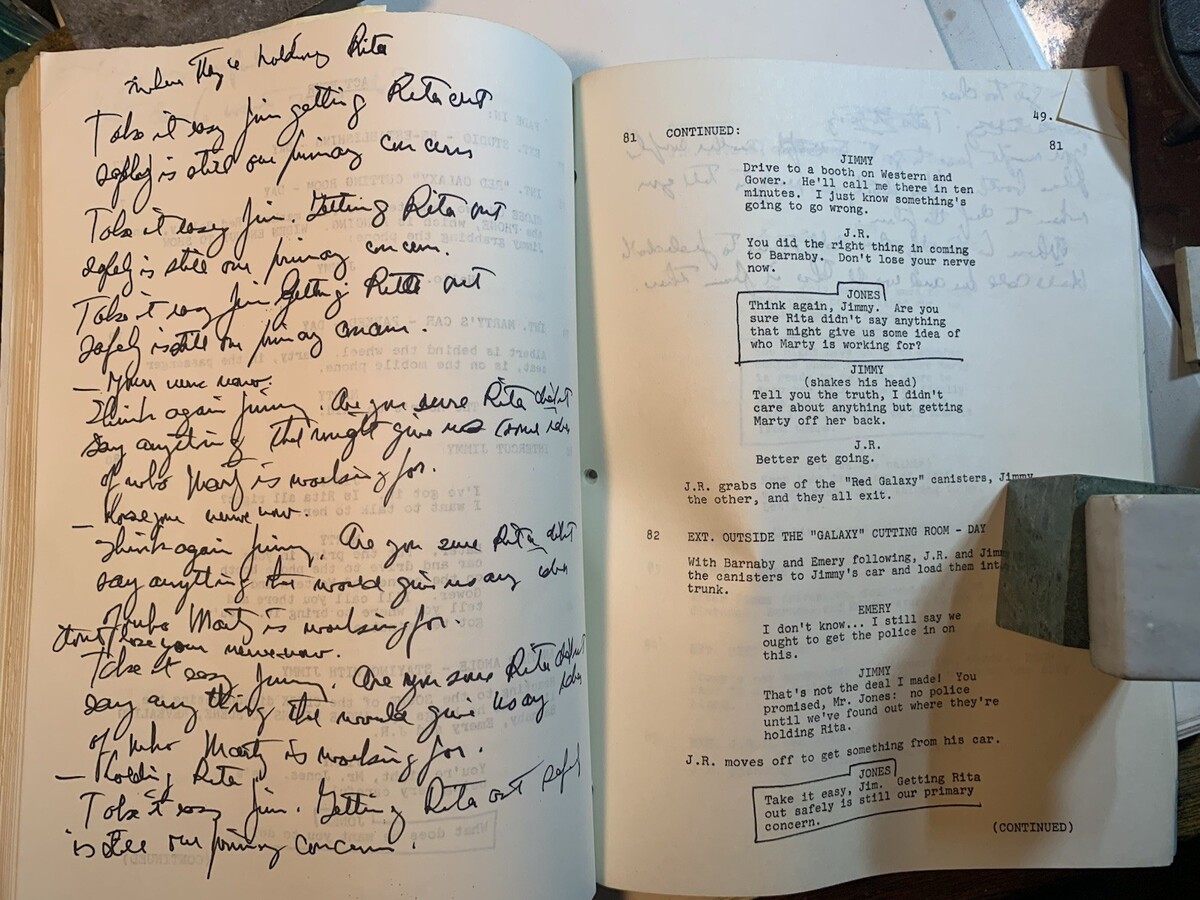 when they're holding Rita
Take it easy Jim getting Rita out
safely is still our primary concern
Take it easy Jim. Getting Rita out
safely is still our primary concern.
Take it easy Jim Getting Rita out
safely is still our primary concern.
— Your nerve now.
Think again Jimmy. Are you sure Rita didn't
say anything that might give us some idea
of who Marty is working for.
— lose your nerve now.
Think again Jimmy. Are you sure Rita didn't
say anything that would give us any idea
of who Marty is working for.
don't lose your nerve now.
Take it easy Jimmy. Are you sure Rita didn't
say anything that would give us any idea
of who Marty is working for.
— Holding Rita
Take it easy Jim. Getting Rita out safely
is still our primary concern.
49.
81 CONTINUED: 81
JIMMY
Drive to a booth on Western and
Gower. He'll call me there in ten
minutes. I just know something's
going to go wrong.
J.R.
You did the right thing in coming
to Barnaby. Don't lose your nerve
now.
JONES
Think again, Jimmy. Are you
sure Rita didn't say anything
that might give us some idea of
who Marty is working for?
JIMMY
(shakes his head)
Tell you the truth, I didn't
care about anything but getting
Marty off her back.
J.R.
Better get going.
J.R. grabs one of the "Red Galaxy" canisters, Jimmy
the other, and they all exit.
82 EXT. OUTSIDE THE "GALAXY" CUTTING ROOM - DAY
With Barnaby and Emery following, J.R. and Jimm
the canisters to Jimmy's car and load them int
trunk.
EMERY
I don't know... I still say we
ought to get the police in on
this.
JIMMY
That's not the deal I made! You
promised, Mr. Jones: no police
until we've found out where they're
holding Rita.
J.R. moves off to get something from his car.
JONES
Take it easy, Jim. Getting Rita
out safely is still our primary
concern.
(CONTINUED)